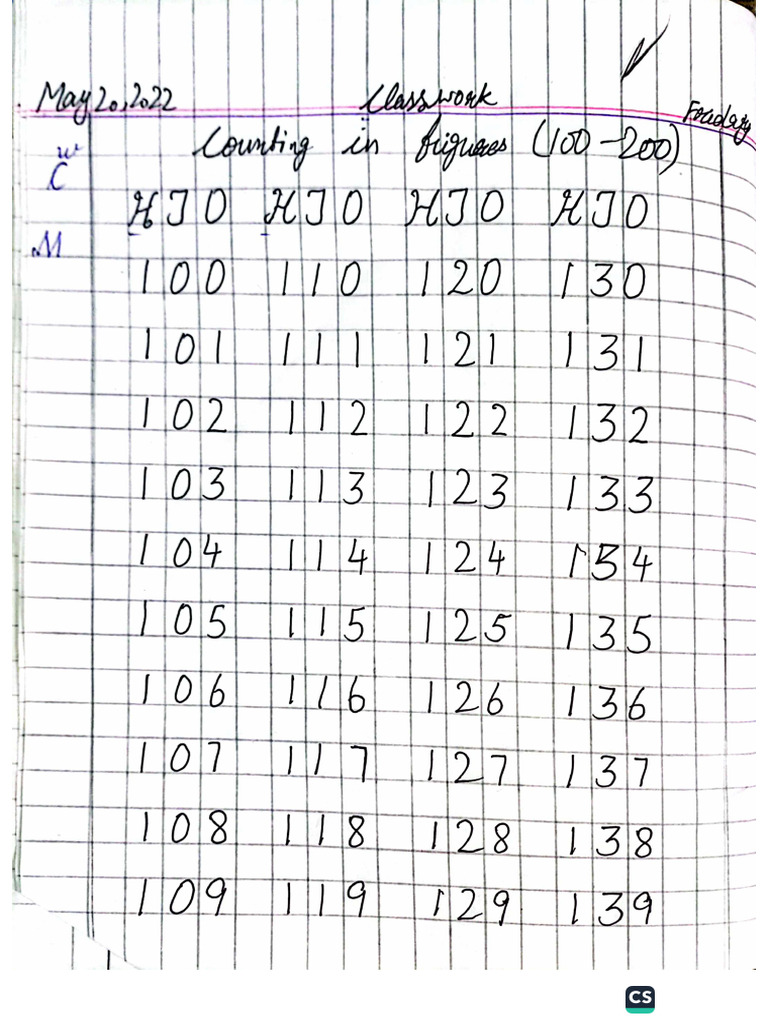 May 20, 2022 Classwork
Counting in figures (100-200)
W
C
H T O H T O H T O H T O
M
100 110 120 130
101 111 121 131
102 112 122 132
103 113 123 133
104 114 124 154
105 115 125 135
106 116 126 136
107 117 127 137
108 118 128 138
109 119 129 139
CS